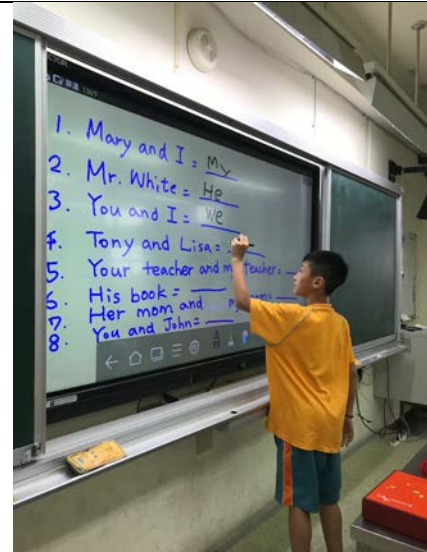 1. Mary and I = My
2. Mr. White = He
3. You and I = We
4. Tony and Lisa =
5. Your teacher and my teacher =
6. His book =
7. Her mom and my =
8. You and John =